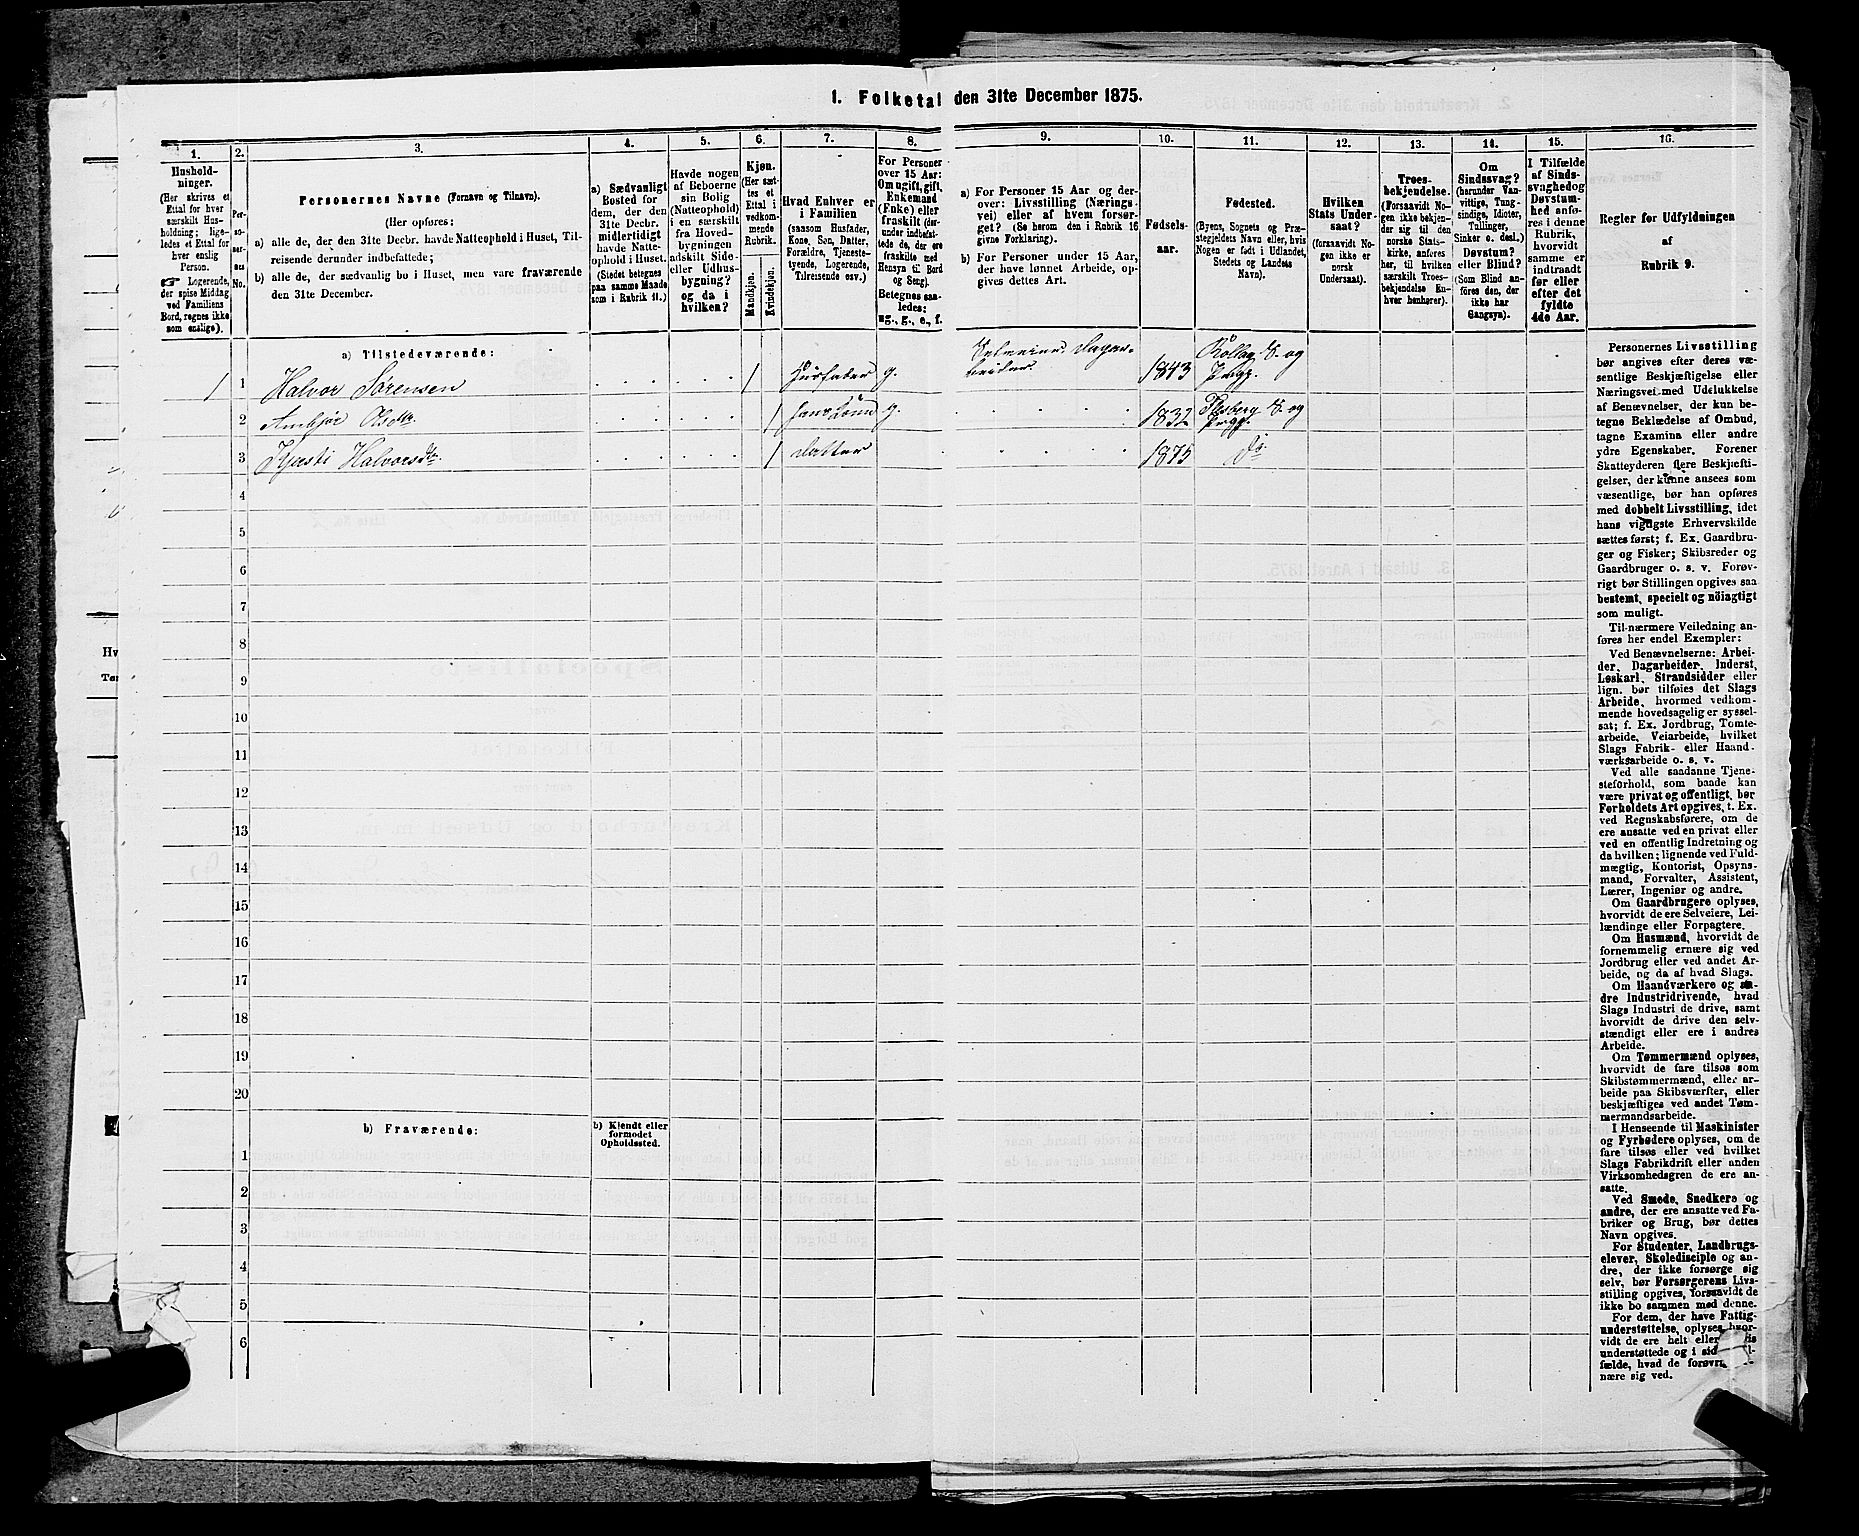 1. Folketal den 31te December 1875.
1.
Hushold-
ninger.
(Her skrives et
Ettal for hver
særskilt Hus-
holdning; lige-
ledes et Ettal for
hver enslig
Person.
☛ Logerende,
der spise Middag
ved Familiens
Bord, regnes ikke
som enslige).
2.
Per-
so-
ner-
nes
No.
3.
Personernes Navne (Fornavn og Tilnavn).
(Her opføres:
a) alle de, der den 31te Decbr. havde Natteophold i Huset, Til-
reisende derunder indbefattede;
b) alle de, der sædvanlig bo i Huset, men vare fraværende
den 31te December.
4.
a) Sædvanligt
Bosted for
dem, der den
31te Decbr.
midlertidigt
havde Natte-
ophold i Huset.
(Stedet betegnes
paa samme Maade
som i Rubrik 11.)
5.
Havde nogen
af Beboerne
sin Bolig
(Natteophold)
i en særskilt
fra Hoved-
bygningen
adskilt Side-
eller Udhus-
bygning?
og da i
hvilken?
6.
Kjøn.
(Her sæt-
tes et
Ettal i
vedkom-
mende
Rubrik.
Mandkjøn.
Kvindekjøn.
7.
Hvad Enhver er
i Familien
(saasom Husfader,
Kone, Søn, Datter,
Forældre, Tjeneste-
tyende, Logerende,
Tilreisende osv.)
8.
For Personer
over 15 Aar:
Om ugift, gift,
Enkemand
(Enke) eller
fraskilt (der-
under indbefat-
tede de, der ere
fraskilte med
Hensyn til Bord
og Seng).
Betegnes saa-
ledes:
ug., g., e., f.
9.
a) For Personer 15 Aar og der-
over: Livsstilling (Nærings-
vei) eller af hvem forsør-
get? (Se herom den i Rubrik 16
givne Forklaring).
b) For Personer under 15 Aar,
der have lønnet Arbeide, op-
gives dettes Art.
10.
Fødsels-
aar.
11.
Fødested.
(Byens, Sognets og Præ-
stegjeldets Navn eller, hvis
Nogen er født i Udlandet,
Stedets og Landets
Navn).
12.
Hvilken
Stats Under-
saat?
(forsaavidt No-
gen ikke er
norsk
Undersaat).
13.
Troes-
bekjendelse.
(Forsaavidt No-
gen ikke bekjen-
der sig til den
norske Stats-
kirke, anføres
her, til hvilken
særskilt Troes-
bekjendelse En-
hver henhører).
14.
Om
Sindssvag?
(herunder Van-
vittige, Tung-
sindige, Idioter,
Tullinger,
Sinker o. desl.)
Døvstum?
eller Blind?
(Som Blind an-
føres den, der
ikke har
Gangsyn).
15.
I Tilfælde
af Sinds-
svaghed og
Døvstum-
hed anfø-
res i denne
Rubrik,
hvorvidt
samme er
indtraadt
før eller
efter det
fyldte
4de Aar.
16.
Regler for Udfyldningen
af
Rubrik 9.
a) Tilstedeværende:
1 1 Halvor Sørensen 1 Husfader g. Selveier. Dagar-
beider. 1843 Rollag S. og
Prgj.
2 Ambjør Olsdtr. 1 hans Kone g. 1832 Flesberg S. og
Prgj.
3 Kjersti Halvorsdtr. 1 datter 1875 Do
4
5
6
7
8
9
10
11
12
13
14
15
16
17
18
19
20
b) Fraværende:
b) Kjendt eller
formodet
Opholdssted.
1
2
3
4
5
6
Personernes Livsstilling
bør angives efter deres væ-
sentlige Beskjæftigelse eller
Næringsvei med Udelukkelse
af Benævnelser, der kun be-
tegne Beklædelse af Ombud,
tagne Examina eller andre
ydre Egenskaber. Forener
Skatteyderen flere Beskjæfti-
gelser, der kunne ansees som
væsentlige, bør han opføres
med dobbelt Livsstilling, idet
hans vigtigste Erhvervskilde
sættes først; f. Ex. Gaardbru-
ger og Fisker; Skibsreder og
Gaardbruger o. s. v. Forøv-
rigt bør Stillingen opgives saa
bestemt, specielt og nöiagtigt
som muligt.
Til nærmere Veiledning an-
føres her endel Exempler:
Ved Benævnelserne: Arbei-
der, Dagarbeider, Inderst,
Løskarl, Strandsidder eller
lign. bør tilføies det Slags
Arbeide, hvormed vedkom-
mende hovedsagelig er syssel-
sat; f. Ex. Jordbrug, Tomte-
arbeide, Veiarbeide, hvilket
Slags Fabrik- eller Haand-
værksarbeide o. s. v.
Ved alle saadanne Tjene-
steforhold, som baade kan
være privat og offentligt, bør
Forholdets Art opgives, t. Ex.
ved Regnskabsførere, om de
ere ansatte ved en privat eller
ved en offentlig Indretning og
da hvilken; lignende ved Fuld-
mægtig, Kontorist, Opsyns-
mand, Forvalter, Assistent,
Lærer, Ingeniør og andre.
Om Gaardbrugere oplyses,
hvorvidt de ere Selveiere, Lei-
lændinge eller Forpagtere.
Om Husmænd, hvorvidt de
fornemmelig ernære sig ved
Jordbrug eller ved andet Ar-
beide, og da af hvad Slags.
Om Haandværkere og an-
dre Industridrivende, hvad
Slags Industri de drive, samt
hvorvidt de drive den selv-
stændigt eller ere i andres
Arbeide.
Om Tømmermænd oplyses,
hvorvidt de fare tilsøs som
Skibstømmermænd, eller ar-
beide paa Skibsværfter, eller
beskjæftiges ved andet Tøm-
mermandsarbeide.
I Henseende til Maskinister
og Fyrbødere oplyses, om de
fare tilsøs eller ved hvilket
Slags Fabrikdrift eller anden
Virksomhedsgren de ere an-
satte.
Ved Smede, Snedkere og
andre, der ere ansatte ved Fa-
briker og Brug, bør dettes
Navn opgives.
For Studenter, Landbrugs-
elever, Skoledisciple og an-
dre, der ikke forsørge sig
selv, bør Forsørgerens Livs-
stilling opgives, forsaavidt de
ikke bo sammen med denne.
For dem, der have Fattig-
understøttelse, oplyses, hvor-
vidt de ere helt eller
understøttede og i
fælde, hvad de
nære sig ved.